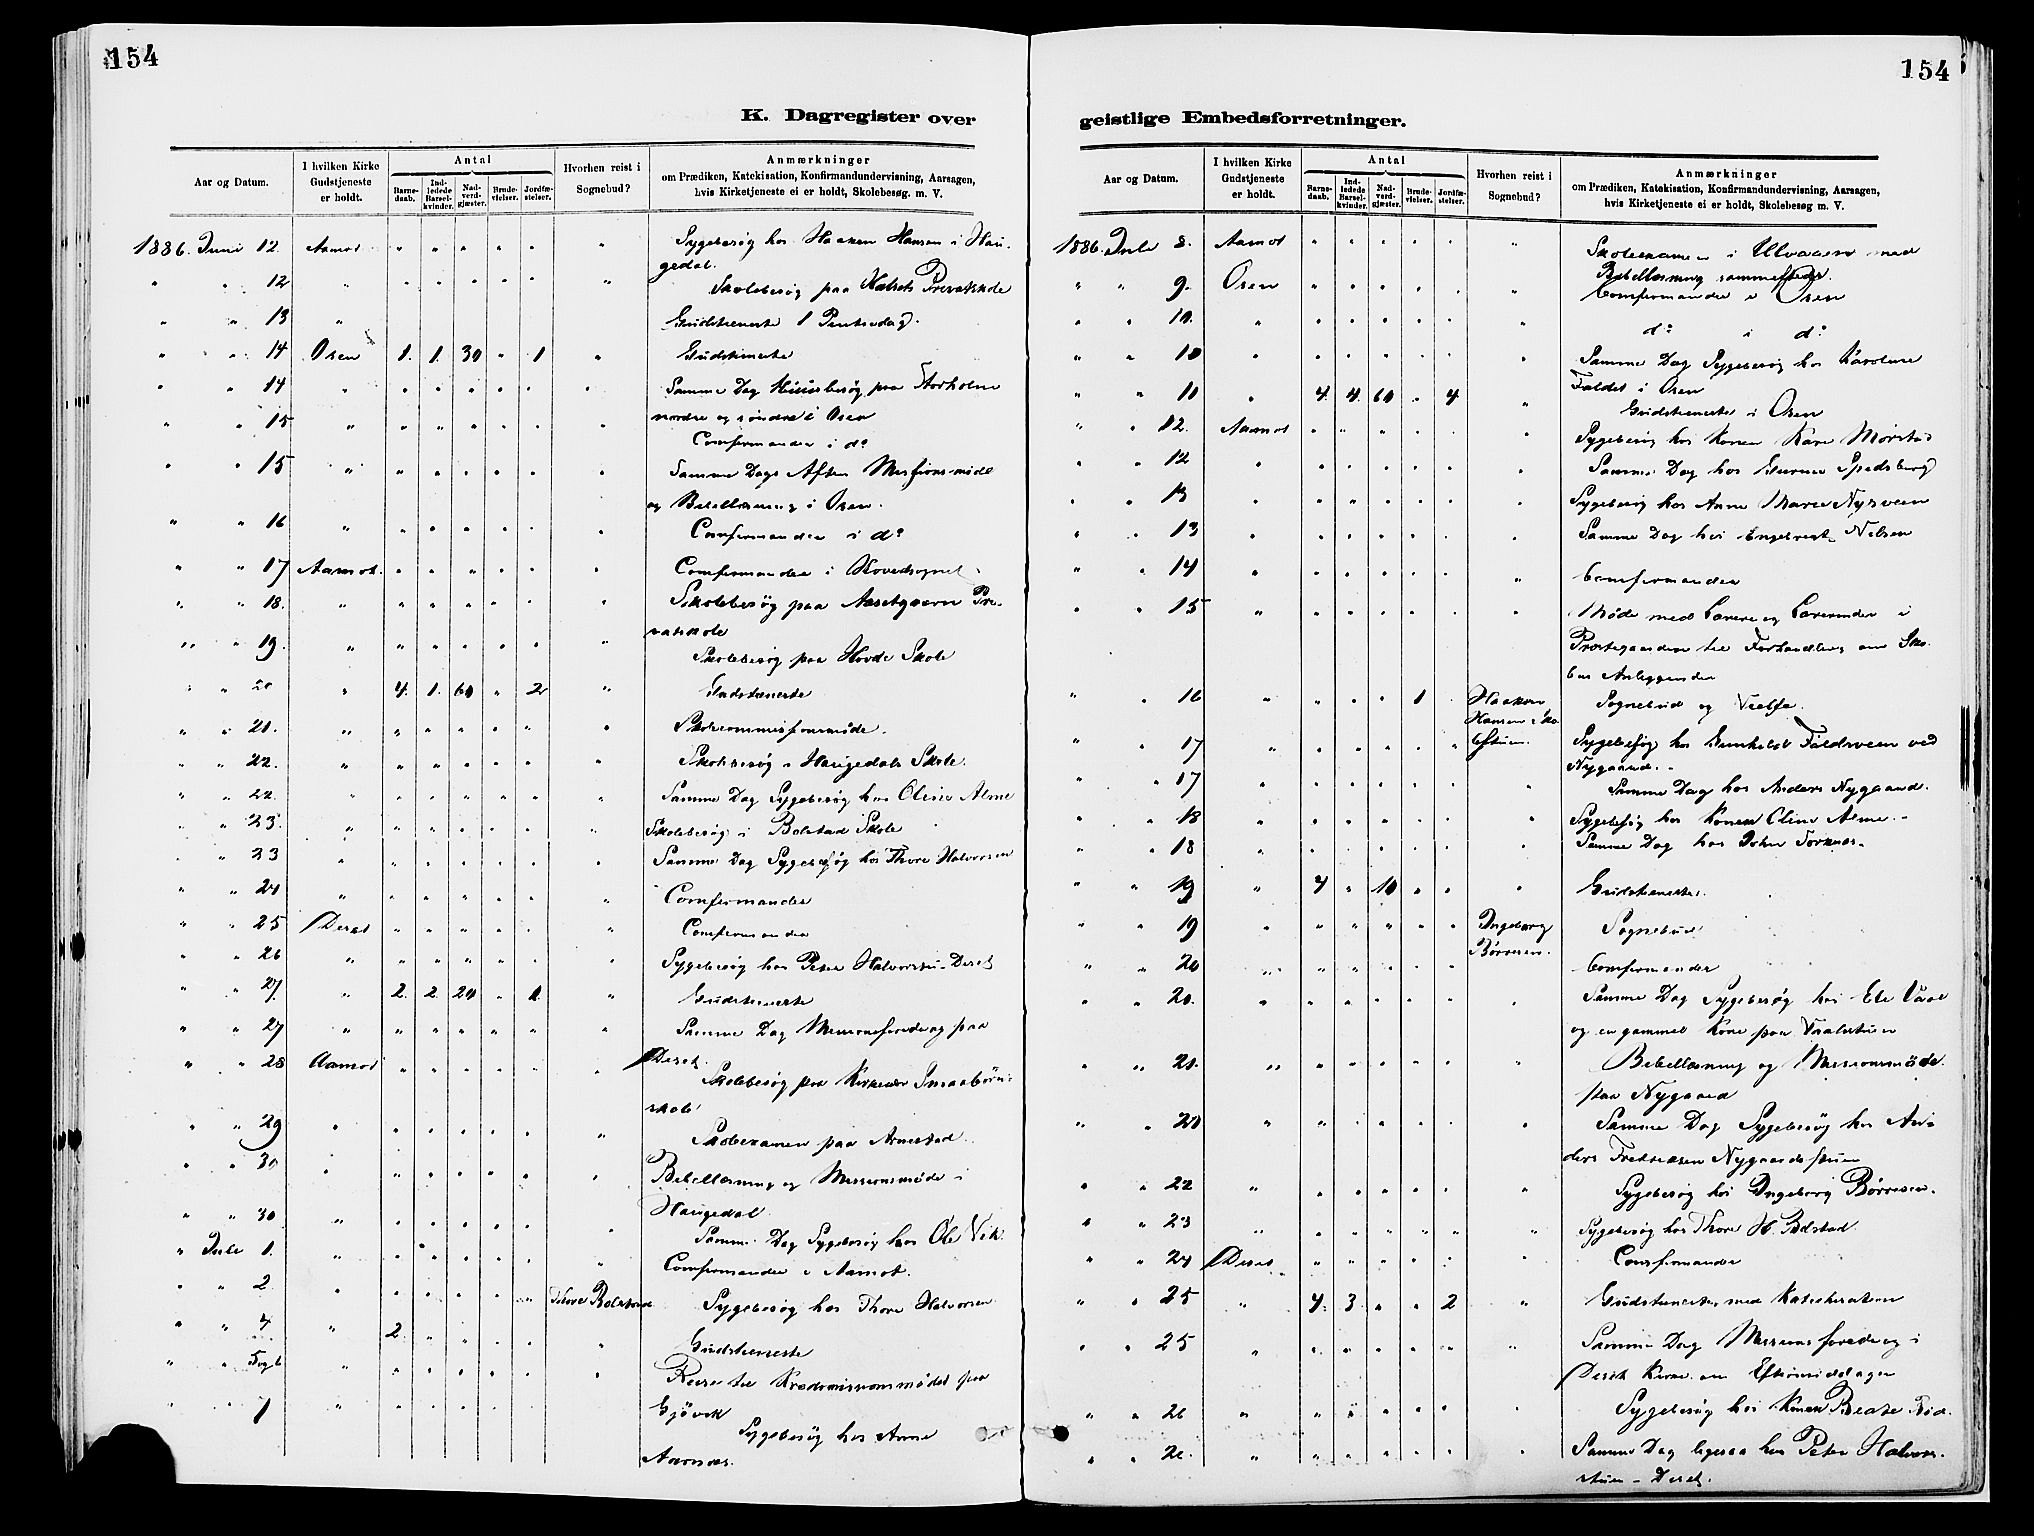 154
K. Dagregister over
Aar og Datum.
I hvilken Kirke Gudstjeneste er holdt.
Antal
Barnedaab.
Indledede Barselkvinder.
Nadverdgjæster.
Brudevielser.
Jordfæstelser.
Hvorhen reist i Sognebud?
Anmærkninger
om Prædiken, Katekisation, Konfirmandundervisning, Aarsagen,
hvis Kirketjeneste ei er holdt, Skolebesøg. m. V.
1886. Juni 12 Aamot " " " " " " Sygebesøg hos Haaken Hansen i Hau-
gedal.
" " 12 " " " " " " Skolebesøg paa Privatskole
" " 13 " Gudstieneste 1 Pintsedag.
" " 14 Osen 1. 1. 30 " 1 " Gudstieneste
" " 14 " " " " " " " Samme Dag Huusbesøg paa Storholm
nordre og søndre i Osen
" " 15 " " " " " " " Comfirmander i do
" " 15 " " " " " " " Samme Dags Aften Missionsmøde
og Bibellæsning i Osen.
" " 16 " " " " " " " Comfirmander i do
" " 17 Aamot. " " " " " " Comfirmander i Hovedsognet
" " 18. " " " " " " " Skolebesøg paa Pri-
vatskole
" " 19. " " " " " " " Skolebesøg paa Hovde Skole
" " 20 " 4. 1. 60 " 2 " Gudstieneste
" " 21. " " " " " " " Skolecommissionsmøde.
" " 22. " " " " " " " Skolebesøg i Haugedals Skole.
" " 22. " " " " " " " Samme Dag Sygebesøg hos Oline Alme
" " 23. " " " " " " " Skolebesøg i Bolstad Skole
" " 23 " " " " " " " Samme Dag Sygebesøg hos Thore Halvorsen
" " 24 " " " " " " " Comfirmander
" " 25 Deset " " " " " " Comfirmander
" " 26 " " " " " " " Sygebesøg hos Peter Halvorstu - Deset
" " 27. " 2. 2. 20 " 1. " Gudstieneste
" " 27 " " " " " " " Samme Dag Missionsforedrag paa
Deset.
" " 28 Aamot " " " " " " Skolebesøg paa Smaabørns-
skole
" " 29 " " " " " " " Skoleexamen paa Arnestad
" " 30 " " " " " " " Bibellæsning og Missionsmøde i
Haugedal
" " 30 " " " " " " " Samme Dag Sygebesøg hos Ole Vik.
" Juli 1. " " " " " " " Comfirmander i Aamot.
" " 2 " " " " " " Thore Bolstad Sygebesøg hos Thore Halvorsen
" " 4 " 2. " " " " " Gudstieneste
" " 5 og 6 " " " " " " " Reise til paa
Gjøvik
" " 7 " " " " " " Sygebesøg hos Anne
Aasnæs.
154
geistlige Embedsforretninger.
Aar og Datum.
I hvilken Kirke Gudstjeneste er holdt.
Antal
Barnedaab.
Indledede Barselkvinder.
Nadverdgjæster.
Brudevielser.
Jordfæstelser.
Hvorhen reist i Sognebud?
Anmærkninger
om Prædiken, Katekisation, Konfirmandundervisning, Aarsagen,
hvis Kirketjeneste ei er holdt, Skolebesøg m. V.
1886. Juli 8. Aamot " " " " " " Skoleexamen i Ulvaaen med
Bibellæsning sammesteds.
" " 9. Osen " " " " " " Comfirmander i Osen
" " 10. " " " " " " " do i do
" " 10 " " " " " " " Samme Dag Sygebesøg hos Karoline
Faldet i Osen
" " 11 " 4. 4. 60 " 4 " Gudstieneste i Osen
" " 12. Aamot " " " " " " Sygebesøg hos Konen Kari Mørstad
" " 12 " " " " " " " Samme Dag hos Spedsberg
" " 13 " " " " " " " Sygebesøg hos Anne Marie Nysveen
" " 13 " " " " " " " Samme Dag hos Engebregt Nilsen
" " 14 " " " " " " " Comfirmander
" " 15 " " " " " " " Møde med Lærere og Lærerinder i
Præstegaarden til Forhandling om Sko-
lens Anliggender
" " 16 " " " " 1 " Haaken Hansen Sognebud og Vielse.
" " 17 " " " " " " Sygebesøg hos Gunhild Faldsveen ved
Nygaard.
" " 17 " " " " " " " Samme Dag hos Anders Nygaard.
" " 18 " " " " " " " Sygebesøg hos Konen Oline Alme.
" " 18 " " " " " " " Samme Dag hos John Torknæs.
" " 19 " 4 " 10 " " " Gudstieneste.
" " 19 " " " " " " Ingeborg Børresen. Sognebud
" " 20 " " " " " " Comfirmander
" " 20. " " " " " " " Samme Dag Sygebesøg hos
og en gammel Kone paa
" " 21. " " " " " " " Bibellæsning og Missionsmøde
paa Nygaard
" " 20 " " " " " " " Samme Dag Sygebesøg hos An-
ders Fredriksen Nygaardsstuen
" " 22 " " " " " " " Sygebesøg hos Ingeborg Børresen.
" " 23 " " " " " " " Sygebesøg hos Thore H. Bolstad
" " 24 Deset " " " " " " Comfirmander
" " 25 " 4. 3. " " 2 " Gudstieneste med Katechisation
" " 25 " " " " " " " Samme Dag Missionsforedrag i
Deset Kirke om Eftermiddagen
" " 26 " " " " " " " Sygebesøg hos Konen Beate
" " 26. " " " " " " " Samme Dag ligesaa hos Peter Halvor-
stuen - Deset.